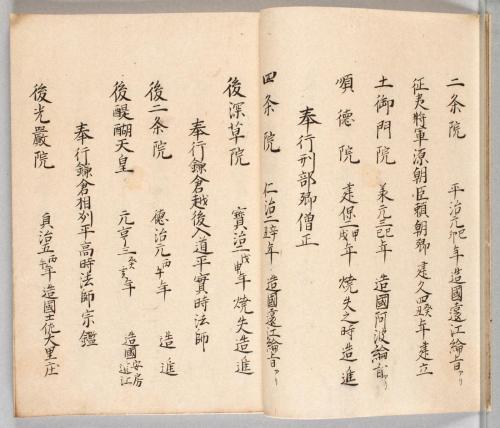 二条院 平治元己卯年 造國遠江綸旨アリ
征夷將軍源頼朝臣頼朝卿 建久四癸丑年建立
土御門院 兼元三己巳年 造國阿波綸旨アリ
順德院 建保二甲戌年 燒失之時造進
奉行刑部卿僧正
四条院 仁治二辛丑年 造國遠江綸旨アリ
後深草院 寶治二戊申年 燒失造進
奉行鎌倉越後入道平實時法師
後二条院 德治元丙午年 造進
後醍醐天皇 元亨三癸亥年 造國安房近江
奉行鎌倉相州平高時法師宗鑑
後光嚴院 貞治五丙午年 造國土佐大里庄